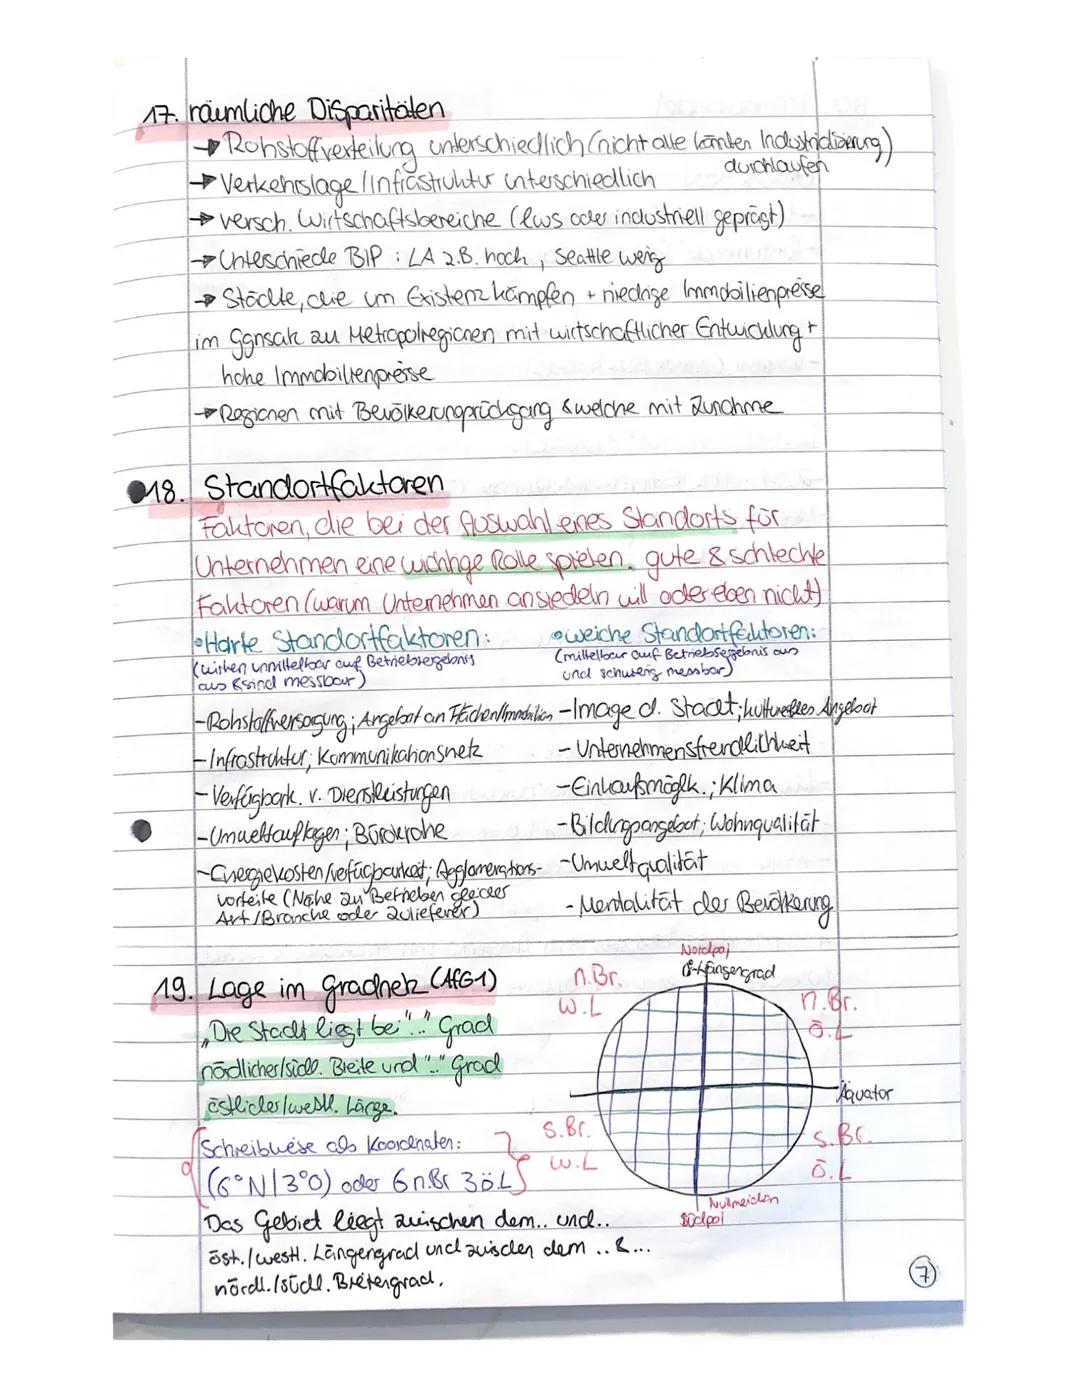 17. räumliche Disparitäten
→ Rohstoffverteilung unterschiedlich (nicht alle konnten Industrialisierung)
durchlaufen
→ Verkehrslage/Infrastruktur unterschiedlich
→ versch. Wirtschaftsbereiche (lws oder industriell geprägt)
→ Unterschiede BIP : LA z.B. hoch, Seattle wenig
→ Städte, die um Existenz kämpfen + niedrige Immobilienpreise
im Ggnsatz zu Metropolregionen mit wirtschaftlicher Entwicklung +
hohe Immobilienpreise
→ Regionen mit Bevölkerungsrückgang & welche mit Zunahme
18. Standortfaktoren
Faktoren, die bei der Auswahl eines Standorts für
Unternehmen eine wichtige Rolle spielen, gute & schlechte
Faktoren (warum Unternehmen ansiedeln will oder eben nicht)
• Harte Standortfaktoren:
(wirken unmittelbar auf Betriebsergebnis
aus & sind messbar)
- Rohstoffversorgung; Angebot an Flächen/Immobilien
- Infrastruktur; Kommunikationsnetz
- Verfügbark. v. Dienstleistungen
- Umweltauflagen; Bürokratie
- Energiekosten/verfügbarkeit; Agglomerations-
vorteile (Nähe zu Betrieben gleicher
Art/Branche oder Zulieferer)
• weiche Standortfaktoren:
(mittelbar auf Betriebsergebnis aus
und schwierig messbar)
- Image d. Stadt; kulturelles Angebot
- Unternehmensfreundlichkeit
- Einkaufsmöglk.; Klima
- Bildungsangebot; Wohnqualität
- Umweltqualität
- Mentalität der Bevölkerung
19. Lage im Gradnetz (AFG1)
„Die Stadt liegt bei ".." Grad
nördlicher/südl. Breite und ".." Grad
östlicher/westl. Länge.
Schreibweise als Koordinaten:
(6°N/3°O) oder 6 n.Br 3 ö.L
Das Gebiet liegt zwischen dem .. und ..
öst./westl. Längengrad und zwischen dem .. & ...
nördl./südl. Breitengrad.
Nordpol
0°-Längengrad
n.Br.
w.L
n.Br.
ö.L
Äquator
s.Br.
w.L
s.Br.
ö.L
Nullmeridian
Südpol
7